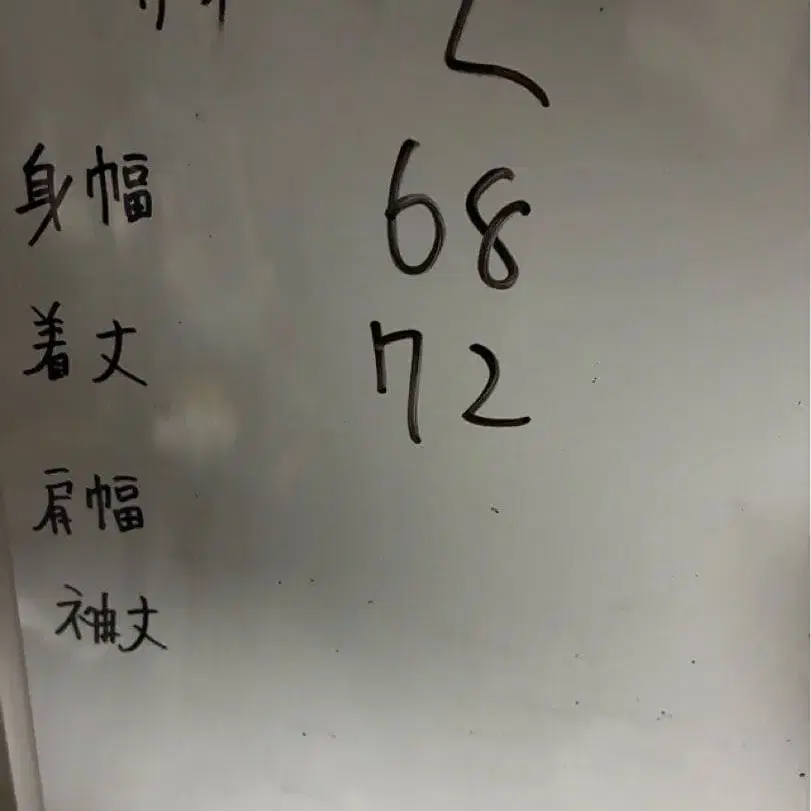 身幅 68
着丈 72
肩幅
袖丈